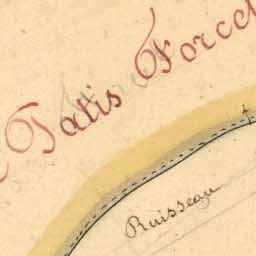 Patis Forcel
Ruisseau